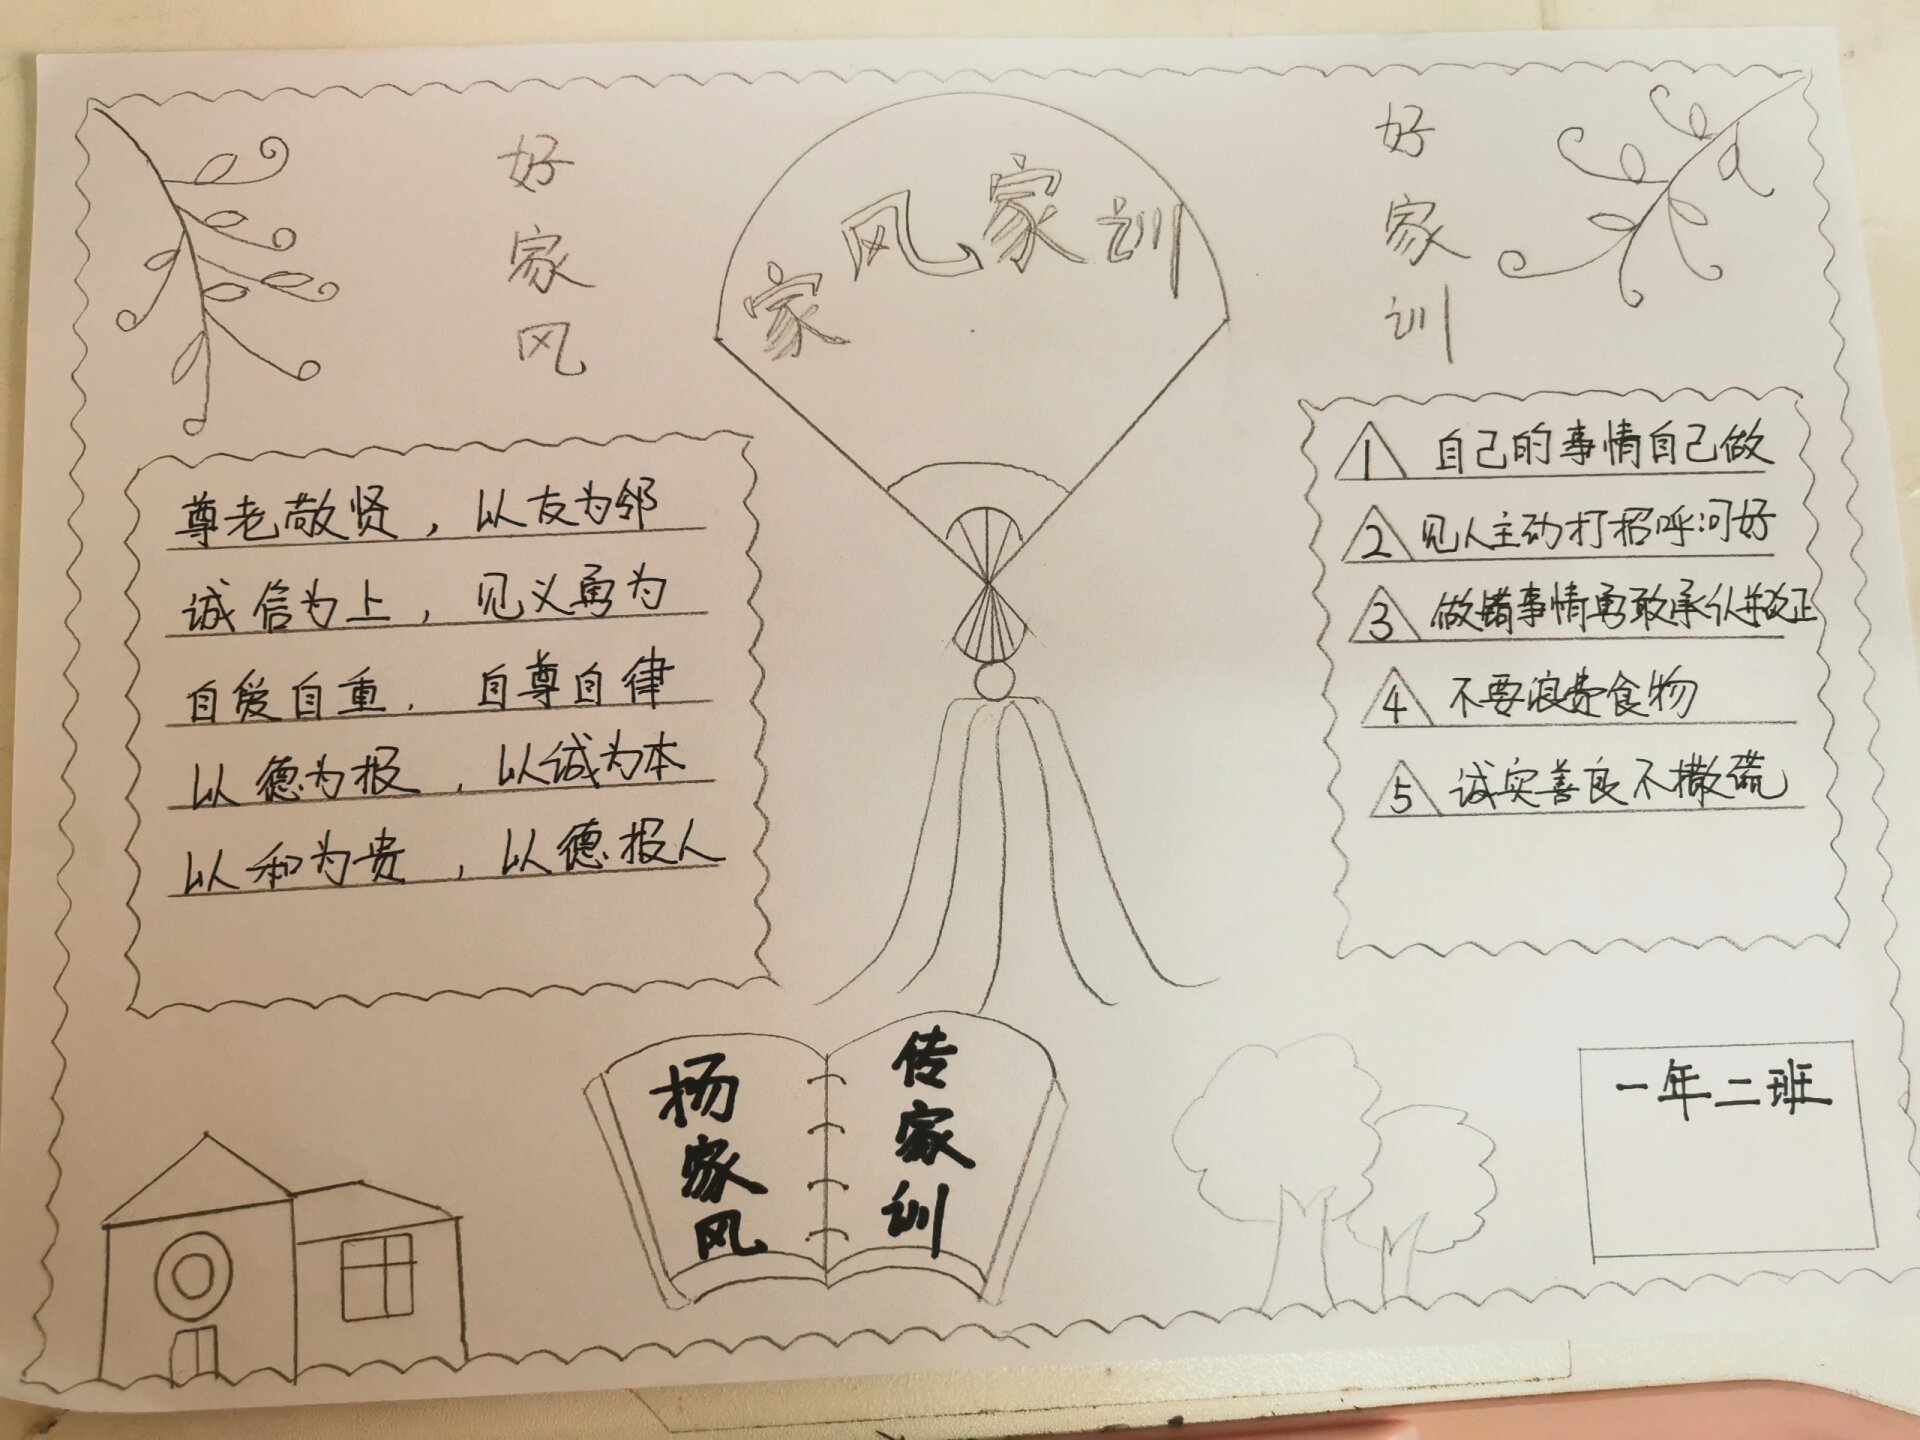 好家风
家风家训
好家训
尊老敬贤，以友为邻
诚信为上，见义勇为
自爱自重，自尊自律
以德为报，以诚为本
以和为贵，以德报人
1 自己的事情自己做
2 见人主动打招呼问好
3 做错事情勇敢承认并改正
4 不要浪费食物
5 诚实善良不撒谎
杨家风
传家训
一年二班